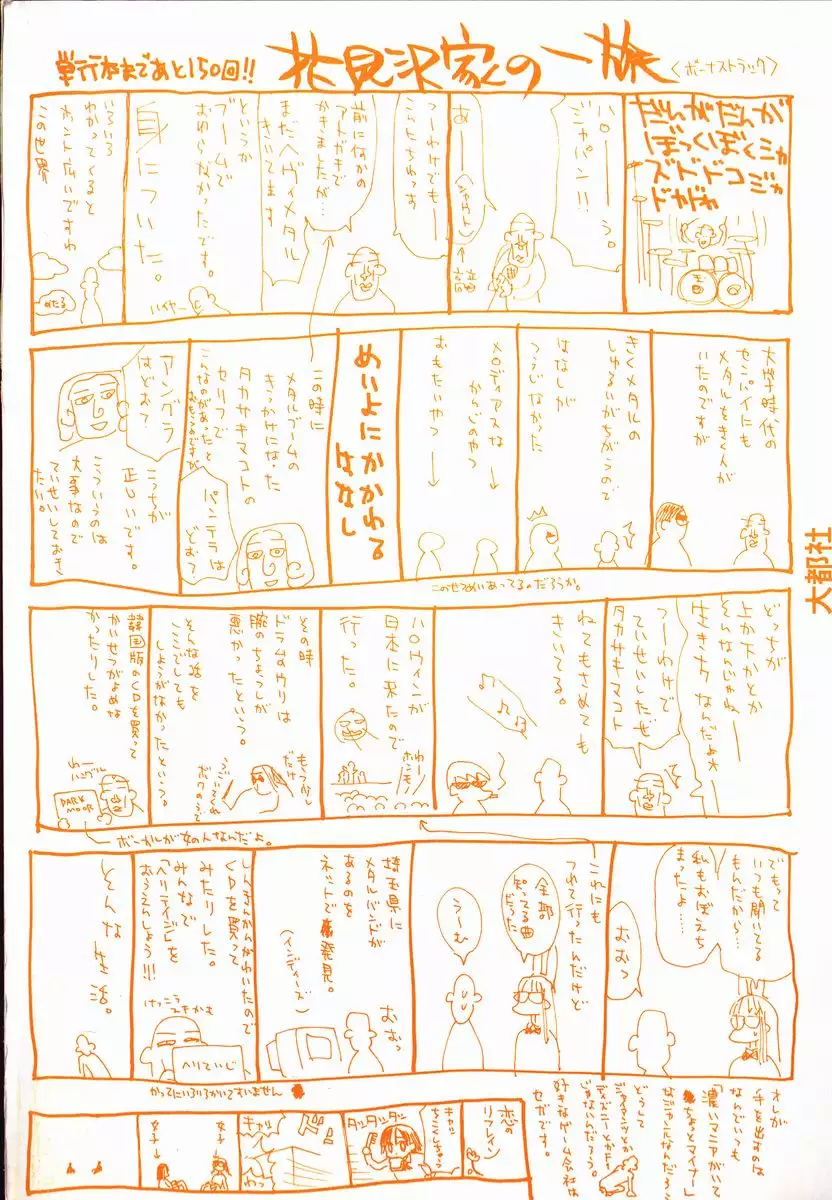 単行本まであと150回!!
花見沢家の一旅
〈ボーナストラック〉
だんがだんが
ぼっくぼくジャ
ズドドコジャ
ドガガ
ハロー――う。
ジャパン!!
あ――
(シャウト)
つーわけでもー
こんにちわっす
前に何かの
アトガキで
かきましたが…
まだヘヴィメタル
きいてます
というか
ブームで
おわらなかったです。
身についた。
ハイヤー
いろいろ
わかってくると
ホント広いですね
この世界
めたる
大学時代の
センパイにも
メタルをきく人が
いたのですが
きくメタルの
しゅるいがちがうので
はなしが
つうじなかった
メロディアスな
かんじのやつ
おもたいやつ
このせつめいあってるのだろうか。
めいよにかかわる
はなし
この時に
メタルブームの
きっかけになった
タカサキマコトの
セリフで
こんなのがあったと
おもうのですが
パンテラは
どお?
アングラ
はどお?
こっちが
正しいです。
こういうのは
大事なので
ていせいしておき
たい。
どっちが
上か下かとか
そんなんじゃねー
生き方なんだよ
つーわけで
ていせいしたぜ
タカサキマコト
ねてもさめても
きいてる。
ハロウィンが
日本に来たので
行った。
わー
ホンモノ
その時
ドラムのウリは
腕のちょうしが
悪かったという。
そんな話を
ここでしても
しょうがなかったという。
もう少し
だけ
うごいてくれ
ボクのうで
韓国版のCDを買って
かいせつがよめな
かったりした。
わー
ハングル
DARK
MOOR
ボーカルが女の人なんだよ。
でもって
いつも聞いてる
もんだから…
私もおぼえち
まったよ……
おむっ
これにも
つれて行ったんだけど
全部
知ってる曲
だった
うーむ
埼玉県に
メタルバンドが
あるのを
ネットで発見。
(インディーズ)
おむっ
しんきんかんがわいたので
CDを買って
みたりした。
みんなで
「ヘリテイジ」を
おうえんしよう!!!
けっこう
スキかも
へりていじ
かってにいろいろかいてすいません
そんな生活。
オレが
手を出すのは
なんでいつも
「濃いマニアがいて
ちょっとマイナー」
なジャンルなんだろう
どうして
ジャマイカとか
ディズニーとかた
じゃなんだろう。
好きなゲーム会社は
セガです。
恋の
リフレイン
キャッ
ちこくしちゃう
ダッダッダッ
ドン
キャッ
わっ
女子→
女子→
大都社